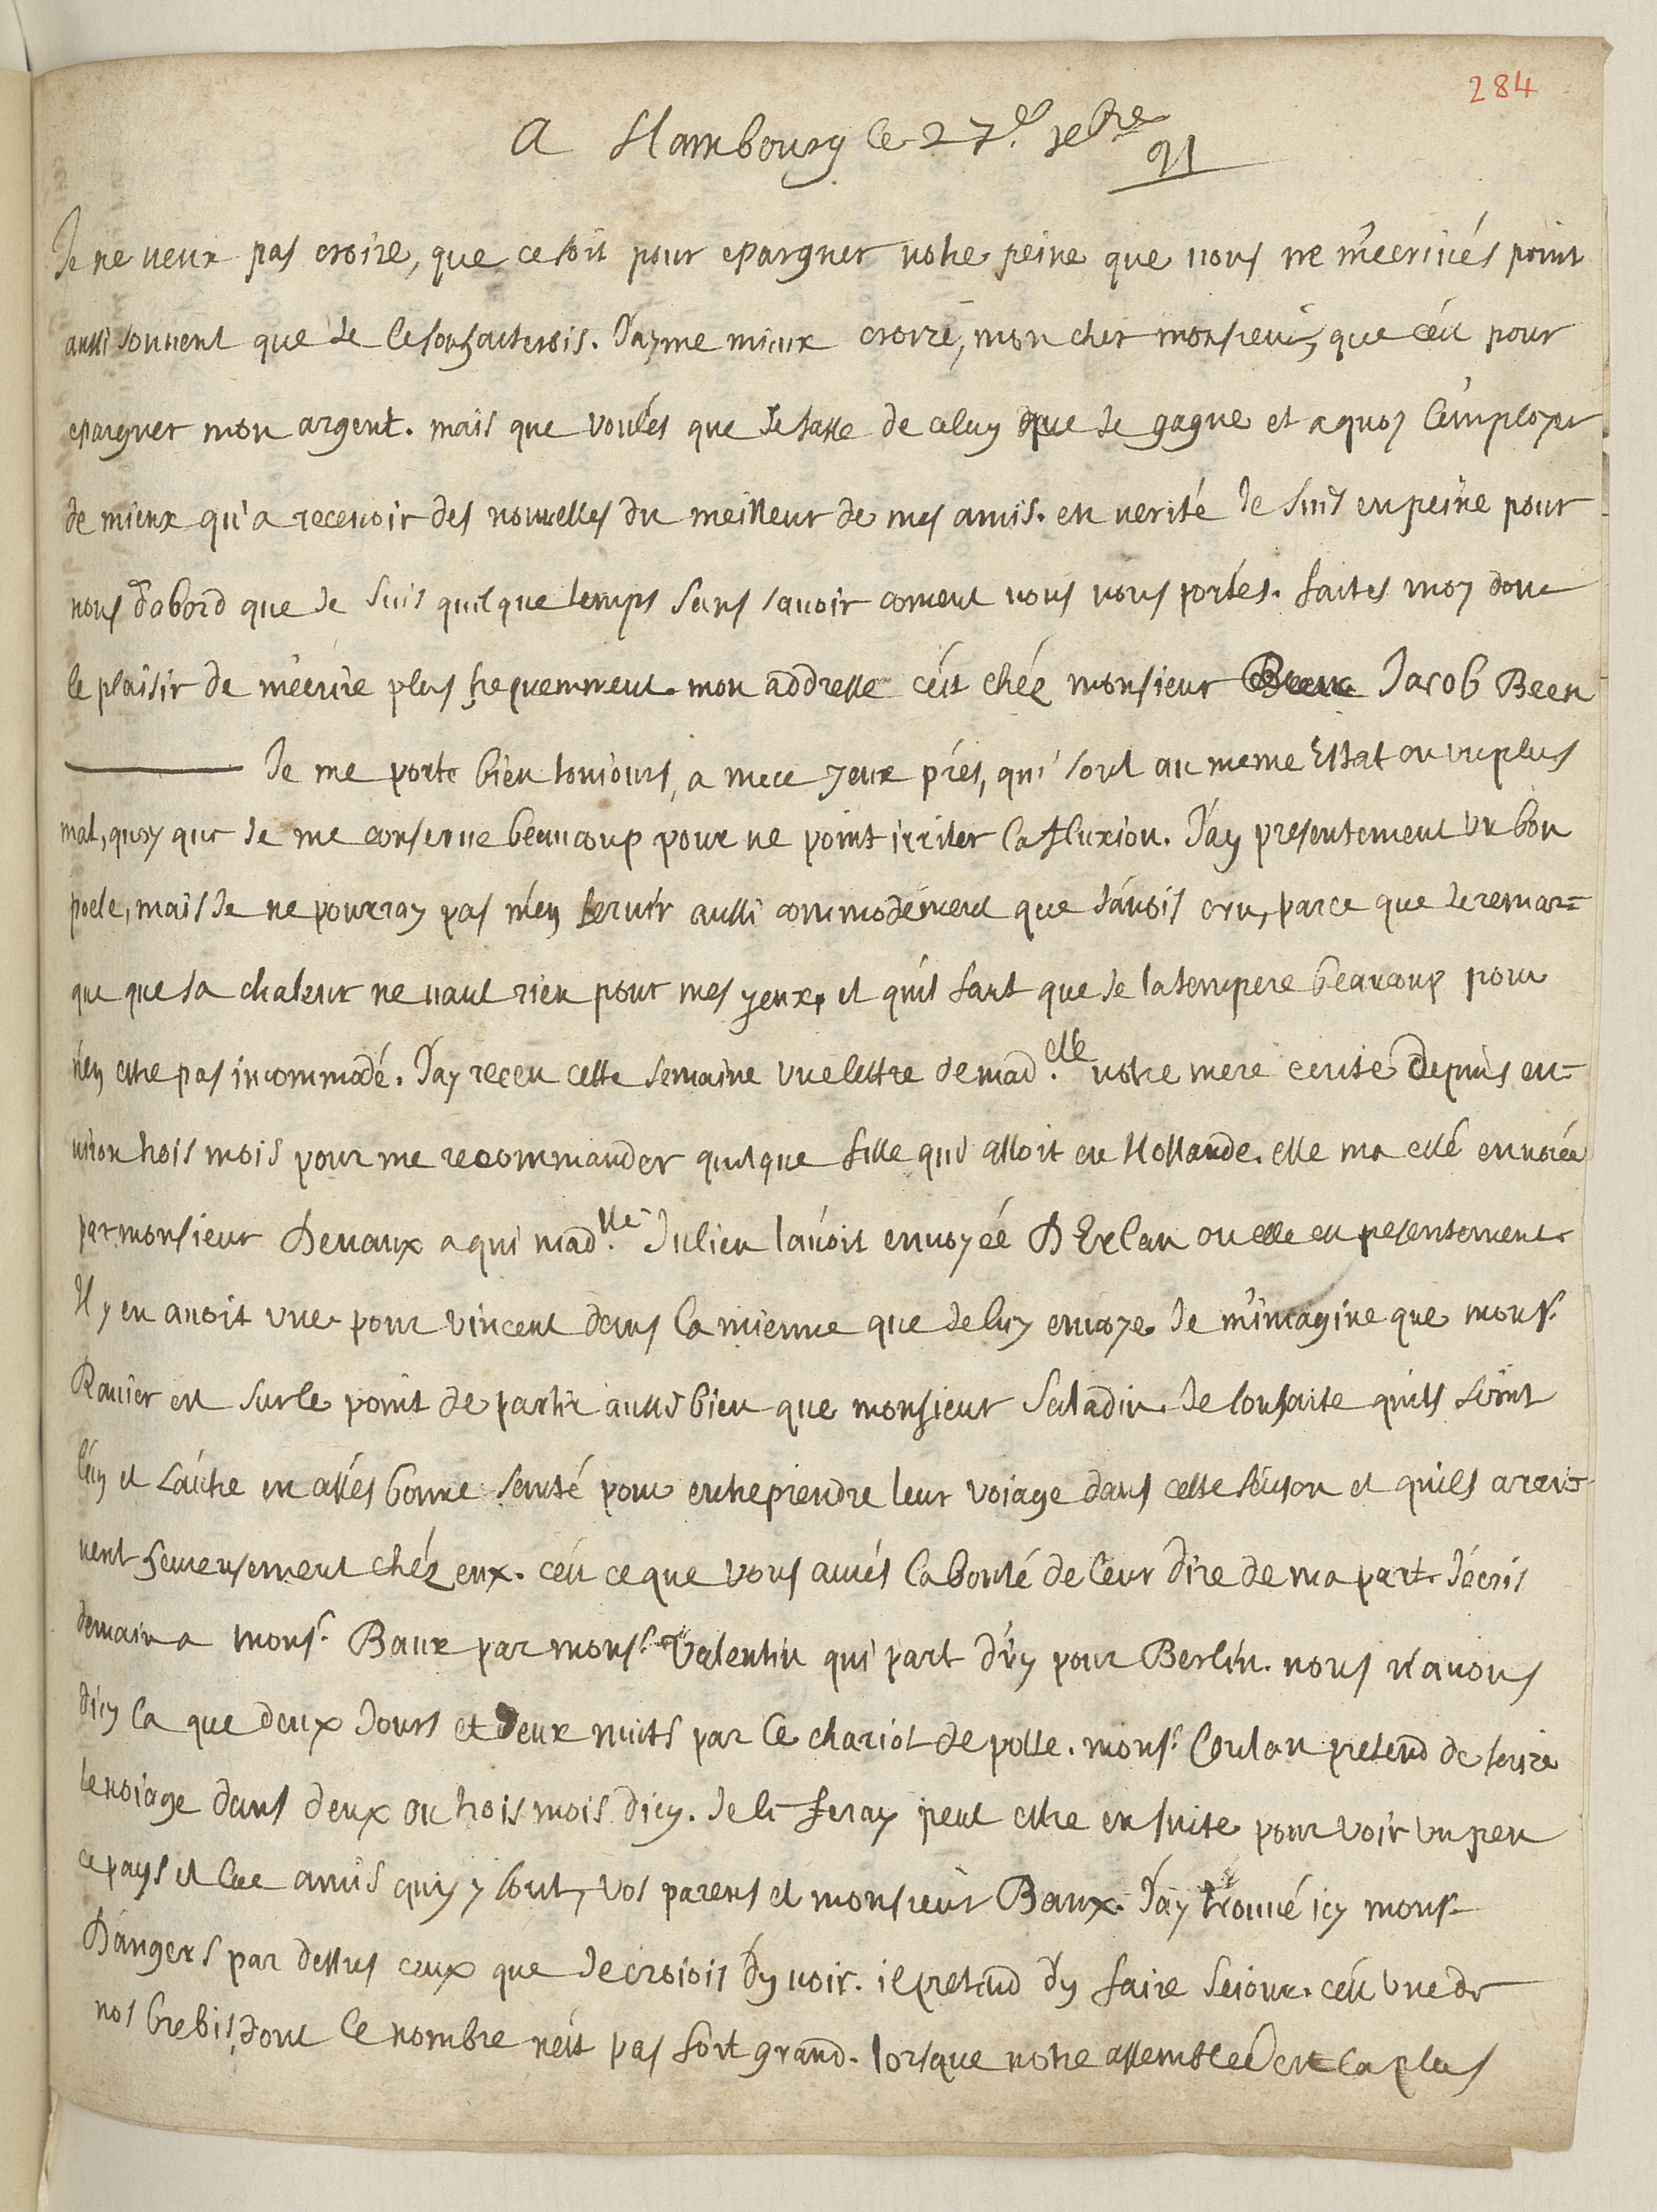 284
A Hambourg le 27.e 7bre
91
Je ne veux pas croire, que ce soit pour epargner votre peine que vous ne m'ecrivés point
aussi souvent que Je le souhaiterois. J'ayme mieux croire, mon cher monsieur, que c'est pour
epargner mon argent. mais que voulés que Je fasse de celuy que Je gagne et a quoy l'employer
de mieux qu'a recevoir des nouvelles du meilleur de mes amis. en verité Je suis en peine pour
vous d'abord que Je suis quelque temps sans savoir coment vous vous portés. faites moy donc
le plaisir de m'ecrire plus frequemment. mon addresse c'est chéz monsieur Jacob Been
Je me porte bien toujours, a mes yeux prés, qui sont au meme Estat ou un plus
mal, quoy que Je me conserve beaucoup pour ne point irriter la fluxion. J'ay presentement un bon
poele, mais Je ne pourray pas m'en servir aussi commodément que J'avois cru, parce que Je remar=
que que sa chaleur ne vaut rien pour mes yeux, et qu'il faut que Je la tempere beaucoup pour
n'en estre pas incommodé. J'ay receu cette semaine une lettre de mad.elle votre mere ecrite depuis en=
viron trois mois pour me recommander quelque fille qui alloit en Hollande. elle m'a esté envoiée
par monsieur Devaux a qui mad.lle Julien l'avoit envoyée D'Erlan ou elle est presentement.
Il y en avoit une pour vincent dans la mienne que Je luy envoye. Je m'imagine que mons.r
Ravier est sur le point de partir aussi bien que monsieur Saladin. Je souhaite qu'ils soint
l'un et l'autre en assés bonne santé pour entreprendre leur voiage dans cette saison et qu'ils arrri-
vent heureusement chéz eux. c'est ce que vous aurés la bonté de leur dire de ma part. J'écris
demain a mons.r Baux par mons.r Valentin qui part d'icy pour Berlin. nous n'avons
d'icy la que deux Jours et deux nuits par le chariot de poste. mons.r Coulan pretend de faire
le voiage dans deux ou trois mois d'icy. Je le feray peut estre en suite pour voir un peu
ce pays et les amis qui y sont, vos parens et monsieur Baux. J'ay trouvé icy mons.r
D'angers par dessus ceux que Je croiois d'y voir. il pretend d'y faire sejour. c'est une de
nos brebis, dont le nombre n'est pas fort grand. lorsque notre assemblée est la plus